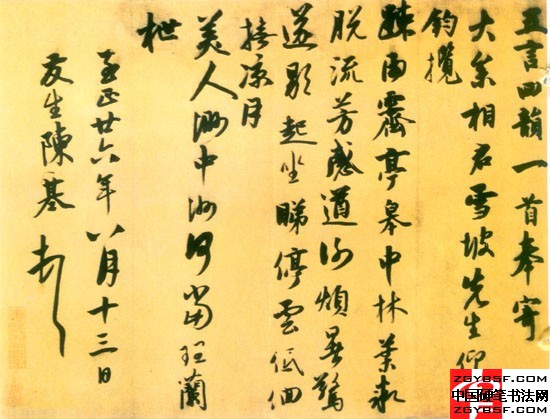 五言四韻一首奉寄
大參相君雪坡先生仰
鈞攬
疎雨霽亭皋中林葉
脫流芳感煩暑驚
起坐睇停雲低佪
涼月
美人洲中洲何當理蘭
枻
至正廿六年八月十三日
友生陳基
ZGYBSF.COM
中国硬笔书法网
ZGYBSF.COM